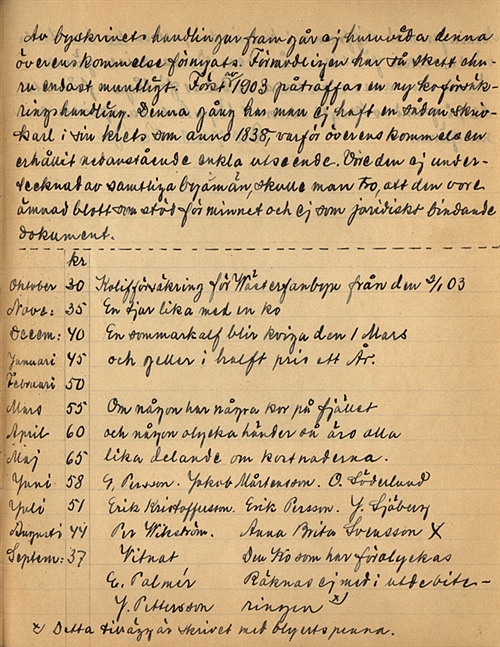 Av byskrinets handlingar framgår ej huruvida denna
överenskommelse förnyats. Förmodligen har så skett ehu-
ru endast muntligt. Först år 1903 påträffas en ny koförsäk-
ringshandling. Denna gång har man ej haft en sådan skriv-
karl i sin krets som anno 1838, varför överenskommelsen
erhållit nedanstående enkla utseende. Vore den ej under-
tecknad av samtliga byamän, skulle man tro, att den vore
ämnad blott som stöd för minnet och ej som juridiskt bindande
dokument.
kr
Oktober 30 Kolifförsäkring för Wästerfanbyn från den 2/1 03
Nove: 35 En tjur lika med en ko
Decem: 40 En sommarkalf blir kviga den 1 Mars
Januari 45 och geller i halft pris ett År.
Februari 50
Mars 55 Om någon har några kor på fjället
April 60 och någon olycka händer så äro alla
Maj 65 lika delande om kostnaderna.
Juni 58 G. Persson. Jakob Mårtensson. O. Söderlund
Juli 51 Erik Kristoffersson. Erik Persson. J. Sjöberg
Augusti 44 Per Wikström. Anna Brita Svensson X
Septem: 37 Vitnat Den Ko som har förolyckas
E. Palmér Räknas ej med i utdebite-
J. Pettersson ringen x)
x) Detta tillägg är skrivet med blyertspenna.